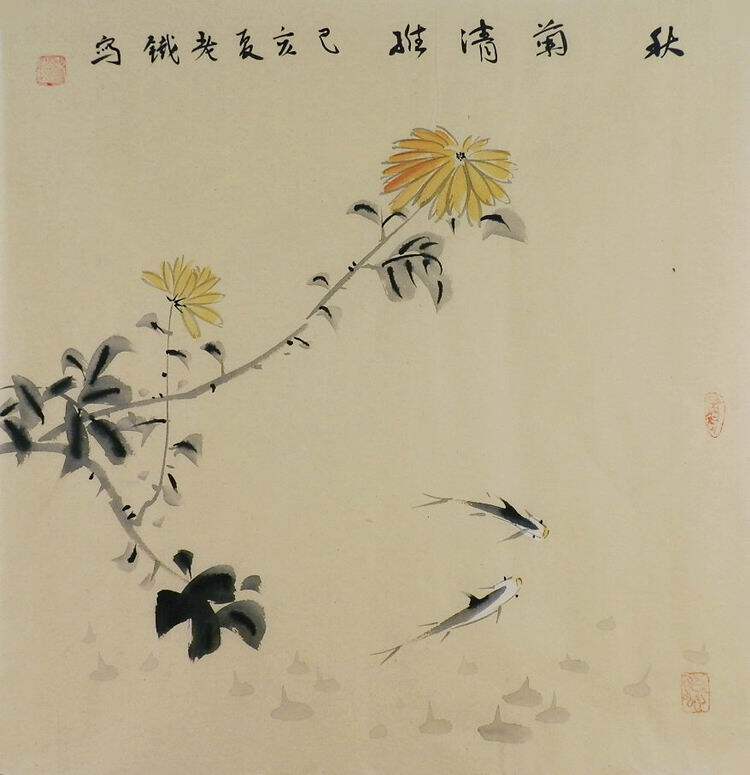 秋菊清雅 己亥夏老鐵写